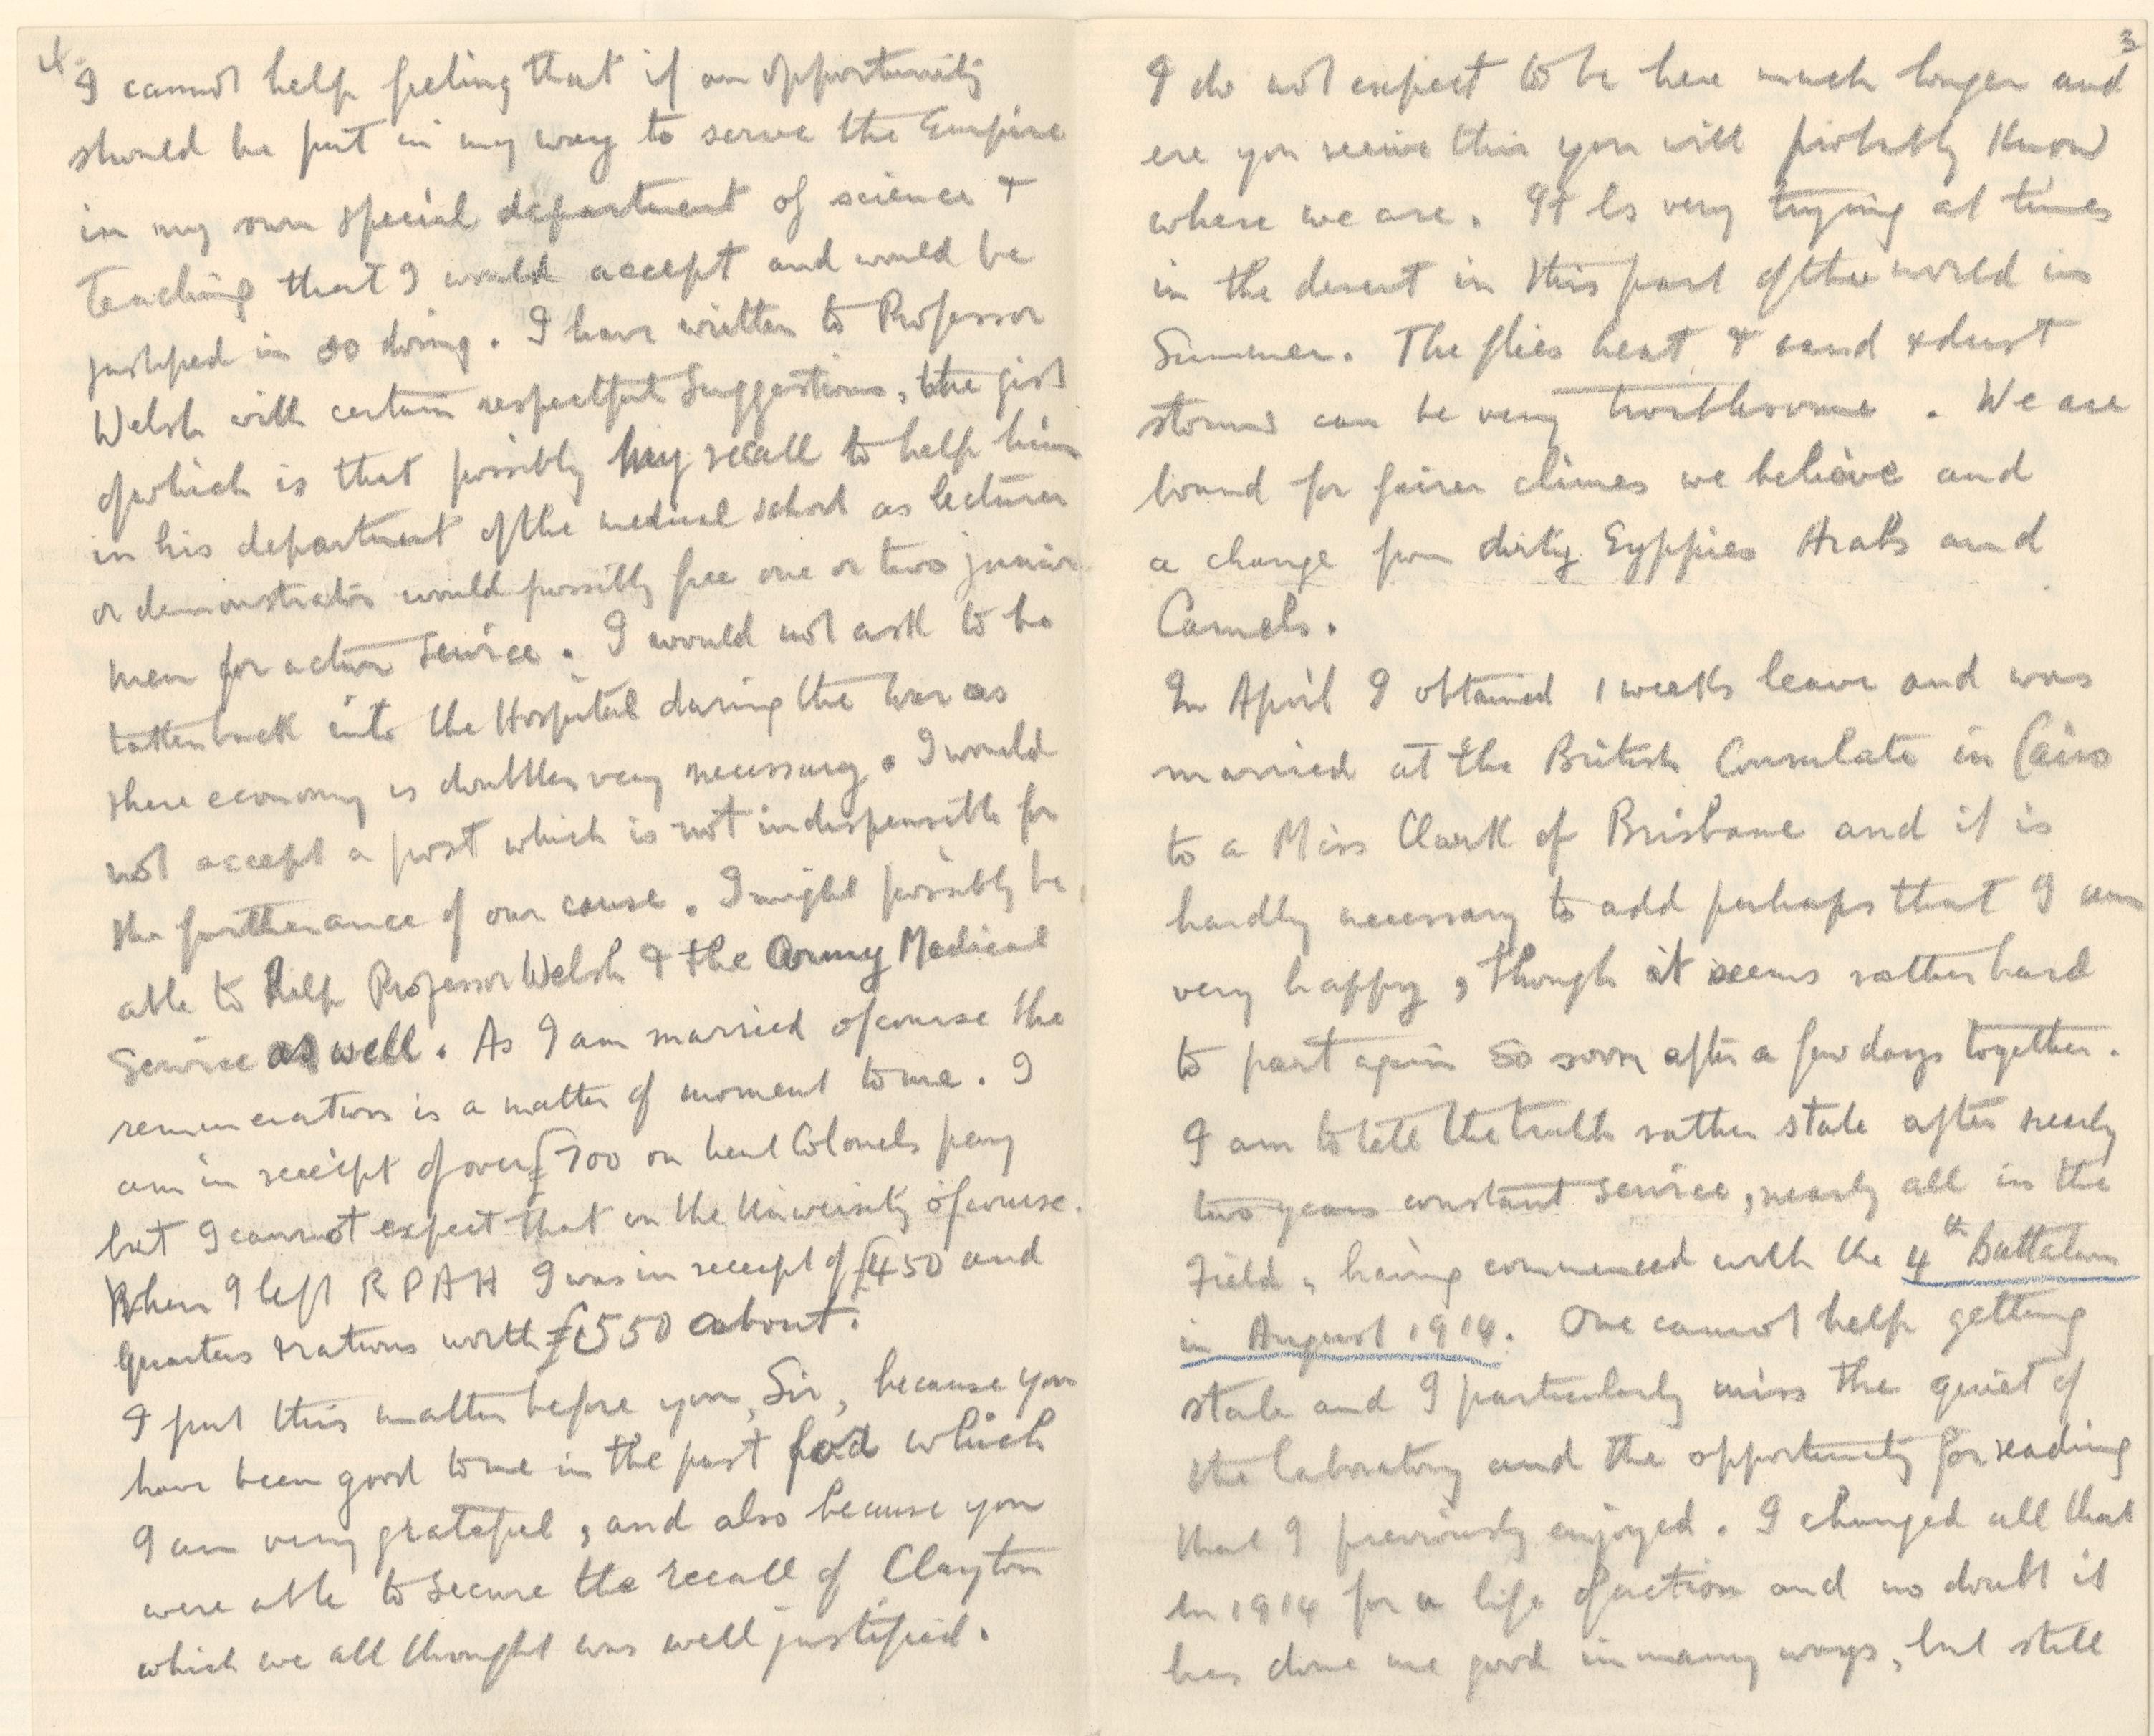 4.
I cannot help feeling that if an opportunity
should be put in my way to serve the Empire
in my own special department of science &
teaching that I would accept and would be
justified in so doing. I have written to Professor
Welsh with certain respectful suggestions, the gist
of which is that possibly my recall to help him
in his department of the medical school as lecturer
or demonstrator would possibly free one or two junior
men for active service. I would not ask to be
taken back into the Hospital during the war as
there economy is doubtless very necessary. I would
not accept a post which is not indispensible for
the furtherance of our cause. I might possibly be
able to help Professor Welsh & the Army Medical
Service as well. As I am married of course the
remuneration is a matter of moment to me. I
am in receipt of over £700 on Lieut Colonels pay
but I cannot expect that in the University of course.
When I left R P A H I was in receipt of £450 and
quarters & rations worth £550 about.
I put this matter before you, Sir, because you
have been good to me in the past for which
I am very grateful, and also because you
were able to secure the recall of Clayton
which we all thought was well justified.
3
I do not expect to be here much longer and
ere you receive this you will probably know
where we are. It is very trying at times
in the desert in this part of the world in
Summer. The flies heat & sand & dust
storms can be very troublesome. We are
bound for fairer climes we believe and
a change from dirty Gyppies Arabs and
Camels.
In April I obtained 1 weeks leave and was
married at the British Consulate in Cairo
to a Miss Clark of Brisbane and it is
hardly necessary to add perhaps that I am
very happy, though it seems rather hard
to part again so soon after a few days together.
I am to tell the truth rather stale after nearly
two years constant service, nearly all in the
Field, having commenced with the 4th Battalion
in August 1914. One cannot help getting
stale and I particularly miss the quiet of
the laboratory and the opportunity for reading
that I previously enjoyed. I changed all that
in 1914 for a life of action and no doubt it
has done me good in many ways, but still